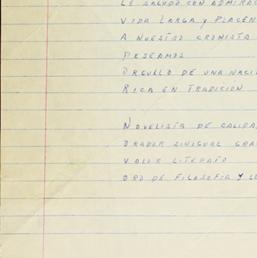 LE SALUDO CON ADMIRAC
VIDA LARGA Y PLACEN
A NUESTRO CRONISTA
DESEAMOS
ORGULLO DE UNA NACI
RICA EN TRADICION
NOVELISTA DE CALIDA
ORADOR SINIGUAL GRA
VALOR LITERATO
DE FILOSOFIA Y